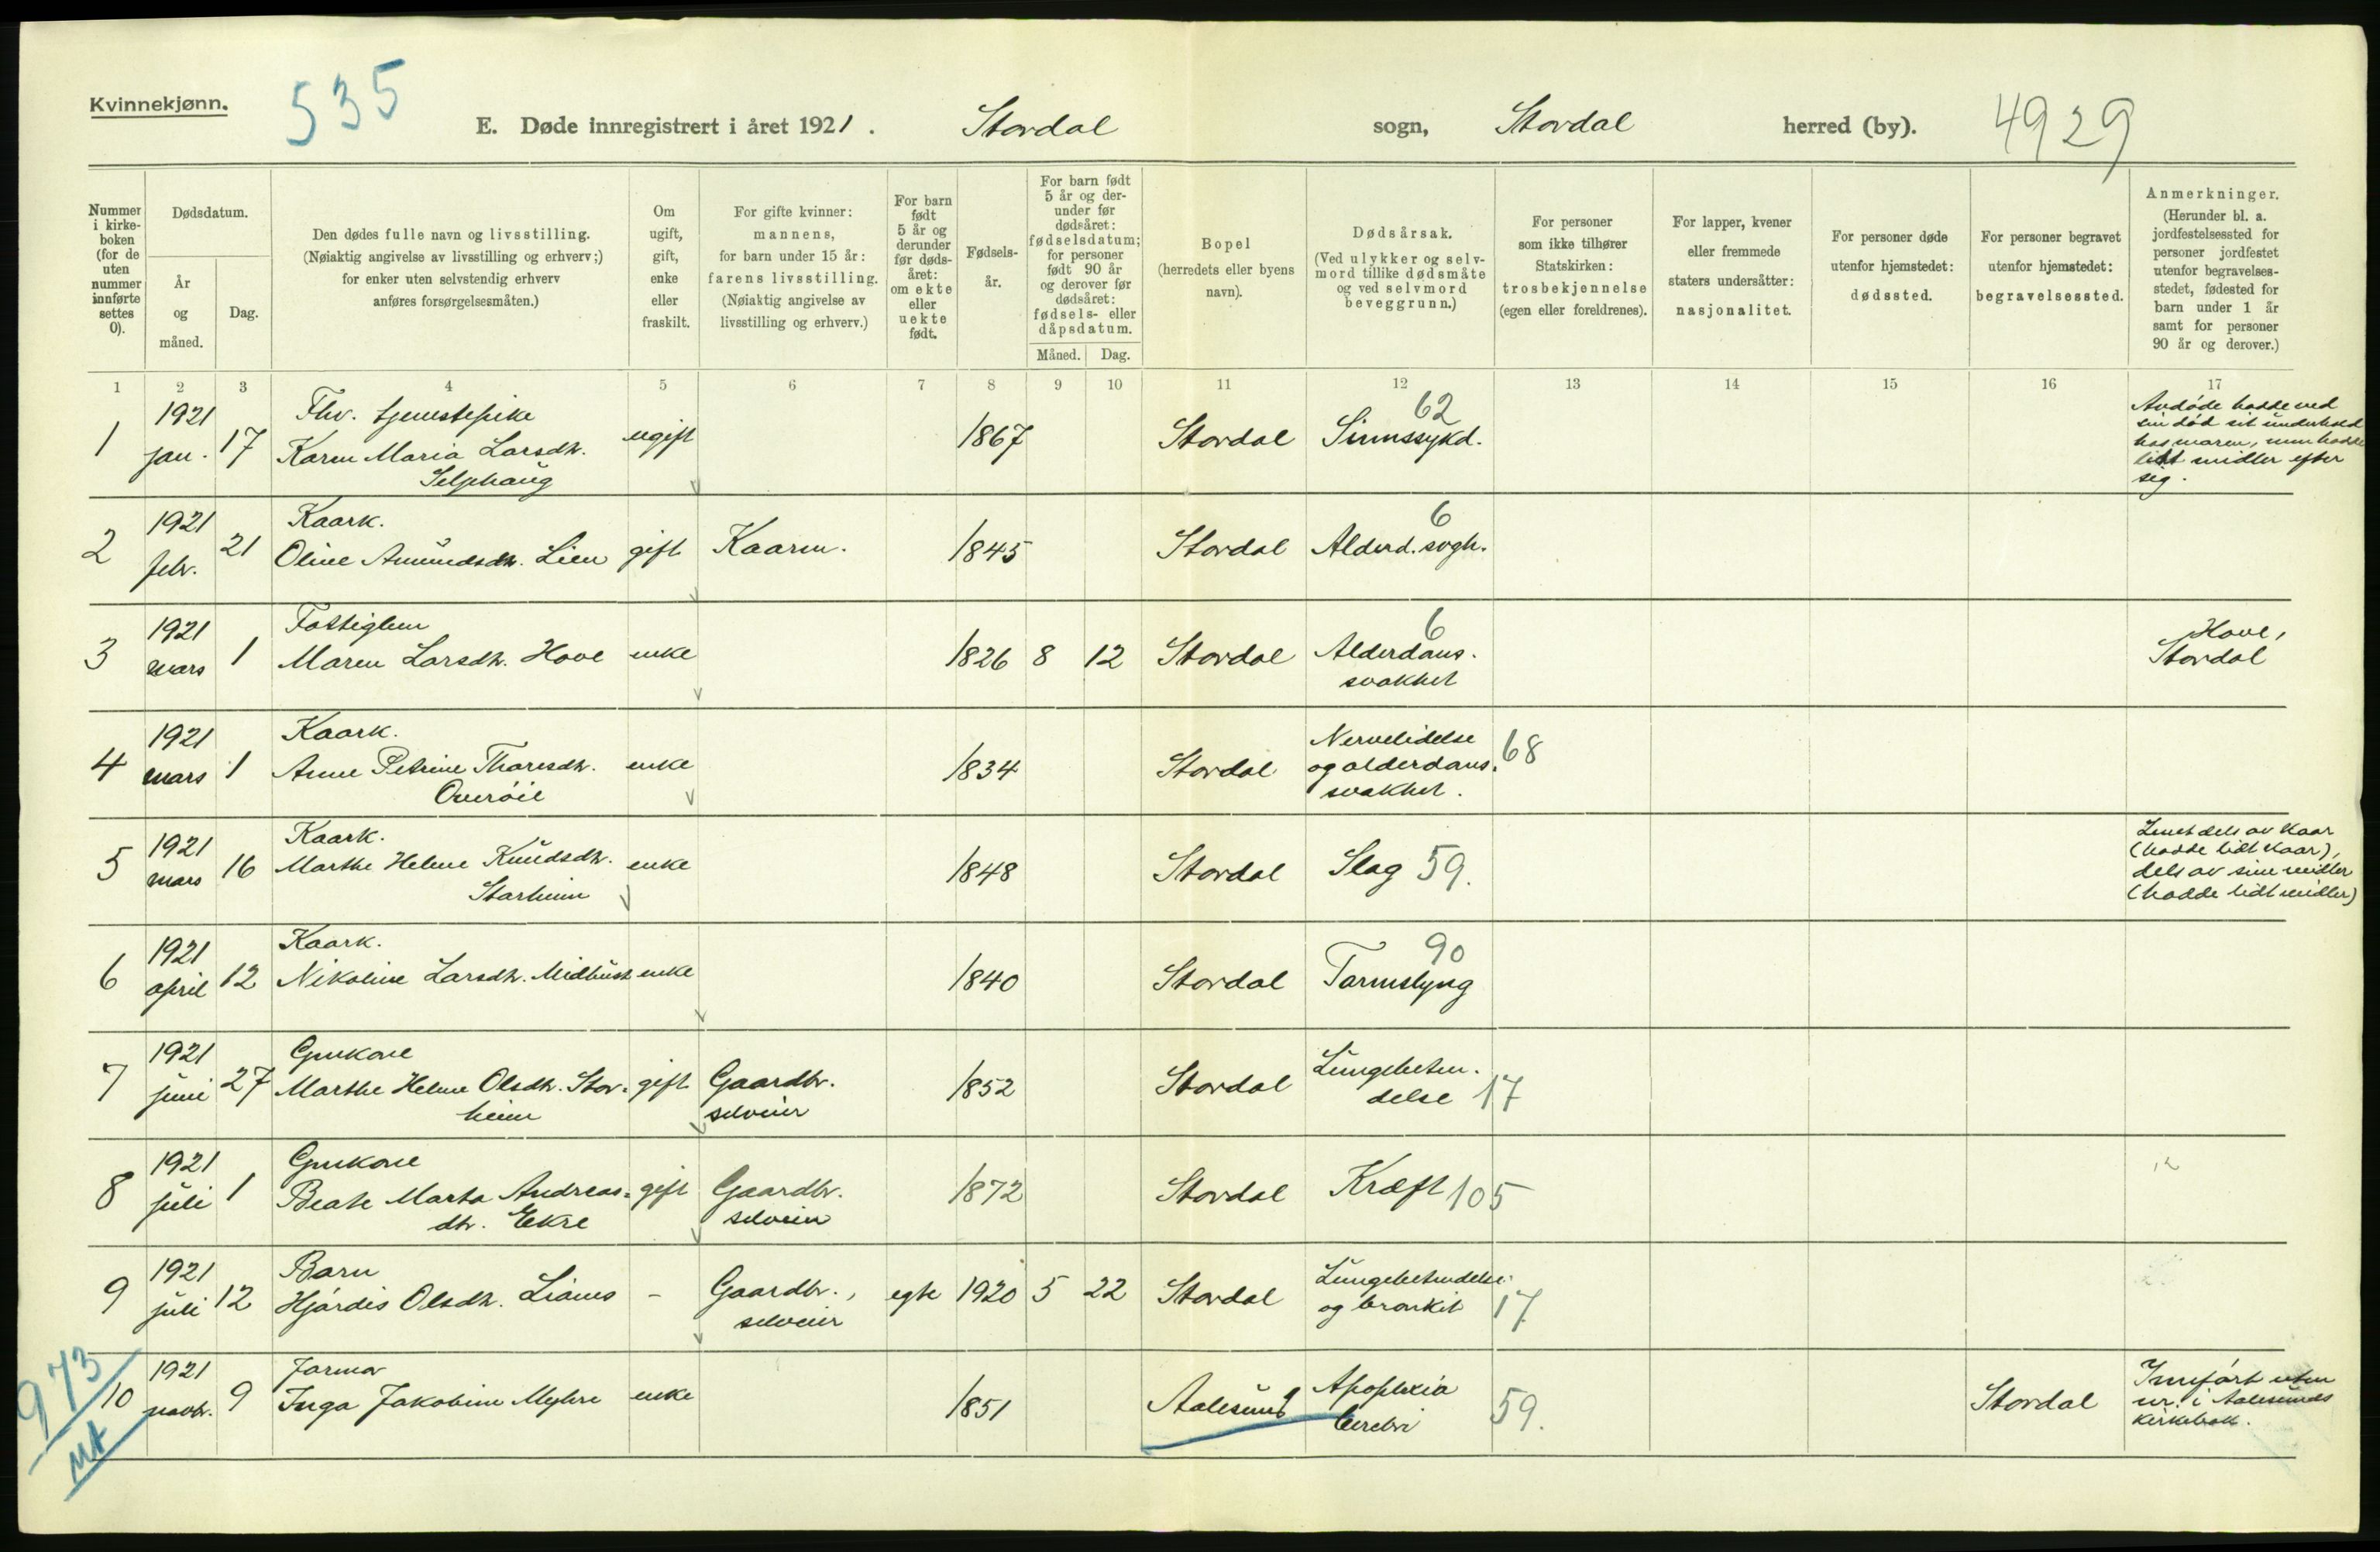 Kvinnekjønn.
535
E. Døde innregistrert i året 1921. Stordal sogn, Stordal herred (by). 4929
Nummer i kirke-boken (for de uten nummer innførte settes 0).
Dødsdatum.
År og måned.
Dag.
Den dødes fulle navn og livsstilling.
(Nøiaktig angivelse av livsstilling og erhverv;)
for enker uten selvstendig erhverv
anføres forsørgelsesmåten.)
Om ugift, gift, enke eller fraskilt.
For gifte kvinner:
mannens,
for barn under 15 år:
farens livsstilling.
(Nøiaktig angivelse av
livsstilling og erhverv.)
For barn født 5 år og derunder før døds-året: om ekte eller uekte født.
Fødsels-år.
For barn født 5 år og der-under før dødsåret: fødselsdatum; for personer født 90 år og derover før dødsåret: fødsels- eller dåpsdatum.
Måned. Dag.
Bopel
(herredets eller byens
navn).
Dødsårsak.
(Ved ulykker og selv-
mord tillike dødsmåte
og ved selvmord
beveggrunn.)
For personer
som ikke tilhører
Statskirken:
trosbekjennelse
(egen eller foreldrenes).
For lapper, kvener
eller fremmede
staters undersåtter:
nasjonalitet.
For personer døde
utenfor hjemstedet:
dødssted.
For personer begravet
utenfor hjemstedet:
begravelsessted.
Anmerkninger.
(Herunder bl. a.
jordfestelsessted for
personer jordfestet
utenfor begravelses-
stedet, fødested for
barn under 1 år
samt for personer
90 år og derover.)
1 2 3 4 5 6 7 8 9 10 11 12 13 14 15 16 17
1 1921 jan. 17 Fhv. tjenestepike
Karen Maria Larsdtr. ugift 1867 Stordal Sinnssykd. 62
Avdøde hadde ved
sin død sit underhold
lidt midler efter
sig.
2 1921 febr. 21 Kaark.
Oline Amundsdtr. Lien gift Kaarm. 1845 Stordal Alderd. svgh. 6
3 1921 mars 1
Maren Larsdtr. Hove enke 1826 8 12 Stordal Alderdoms-
svakhet 6
Hove,
Stordal
4 1921 mars 1 Kaark.
Anne Petrine Tharesdtr. enke 1834 Stordal Nervelidelse
og alderdoms-
svakhet. 68
Overøie
5 1921 mars 16 Kaark.
Marthe Helene Knudsdtr. enke 1848 Stordal Slag 59.
Storheim
dels av kaar
(hadde lidt kaar),
dels av sine midler
(hadde lidt midler)
6 1921 april 12 Kaark.
Nikoline Larsdtr. Midhust enke 1840 Stordal Tarmslyng 90
7 1921 juni 27 Gmkone
Marthe Helene Olsdtr. Stor- gift Gaardbr. 1852 Stordal Lungebeten-
heim selveier delse 17
8 1921 juli 1 Gmkone
Beate Marta Andreas- gift Gaardbr. 1872 Stordal Kræft 105
dtr. Ekre selveier
9 1921 juli 12 Barn
Hjørdis Olsdtr. Lianes - Gaardbr., egte 1920 5 22 Stordal Lungebetendelse
selveier og bronkit 17
973
10 1921 novbr. 9 Jormor
Inga Jakobine Myhre enke 1851 Aalesund Apoplexia
cerebri 59. Stordal Innført uten
nr. i Aalesunds
kirkebok.